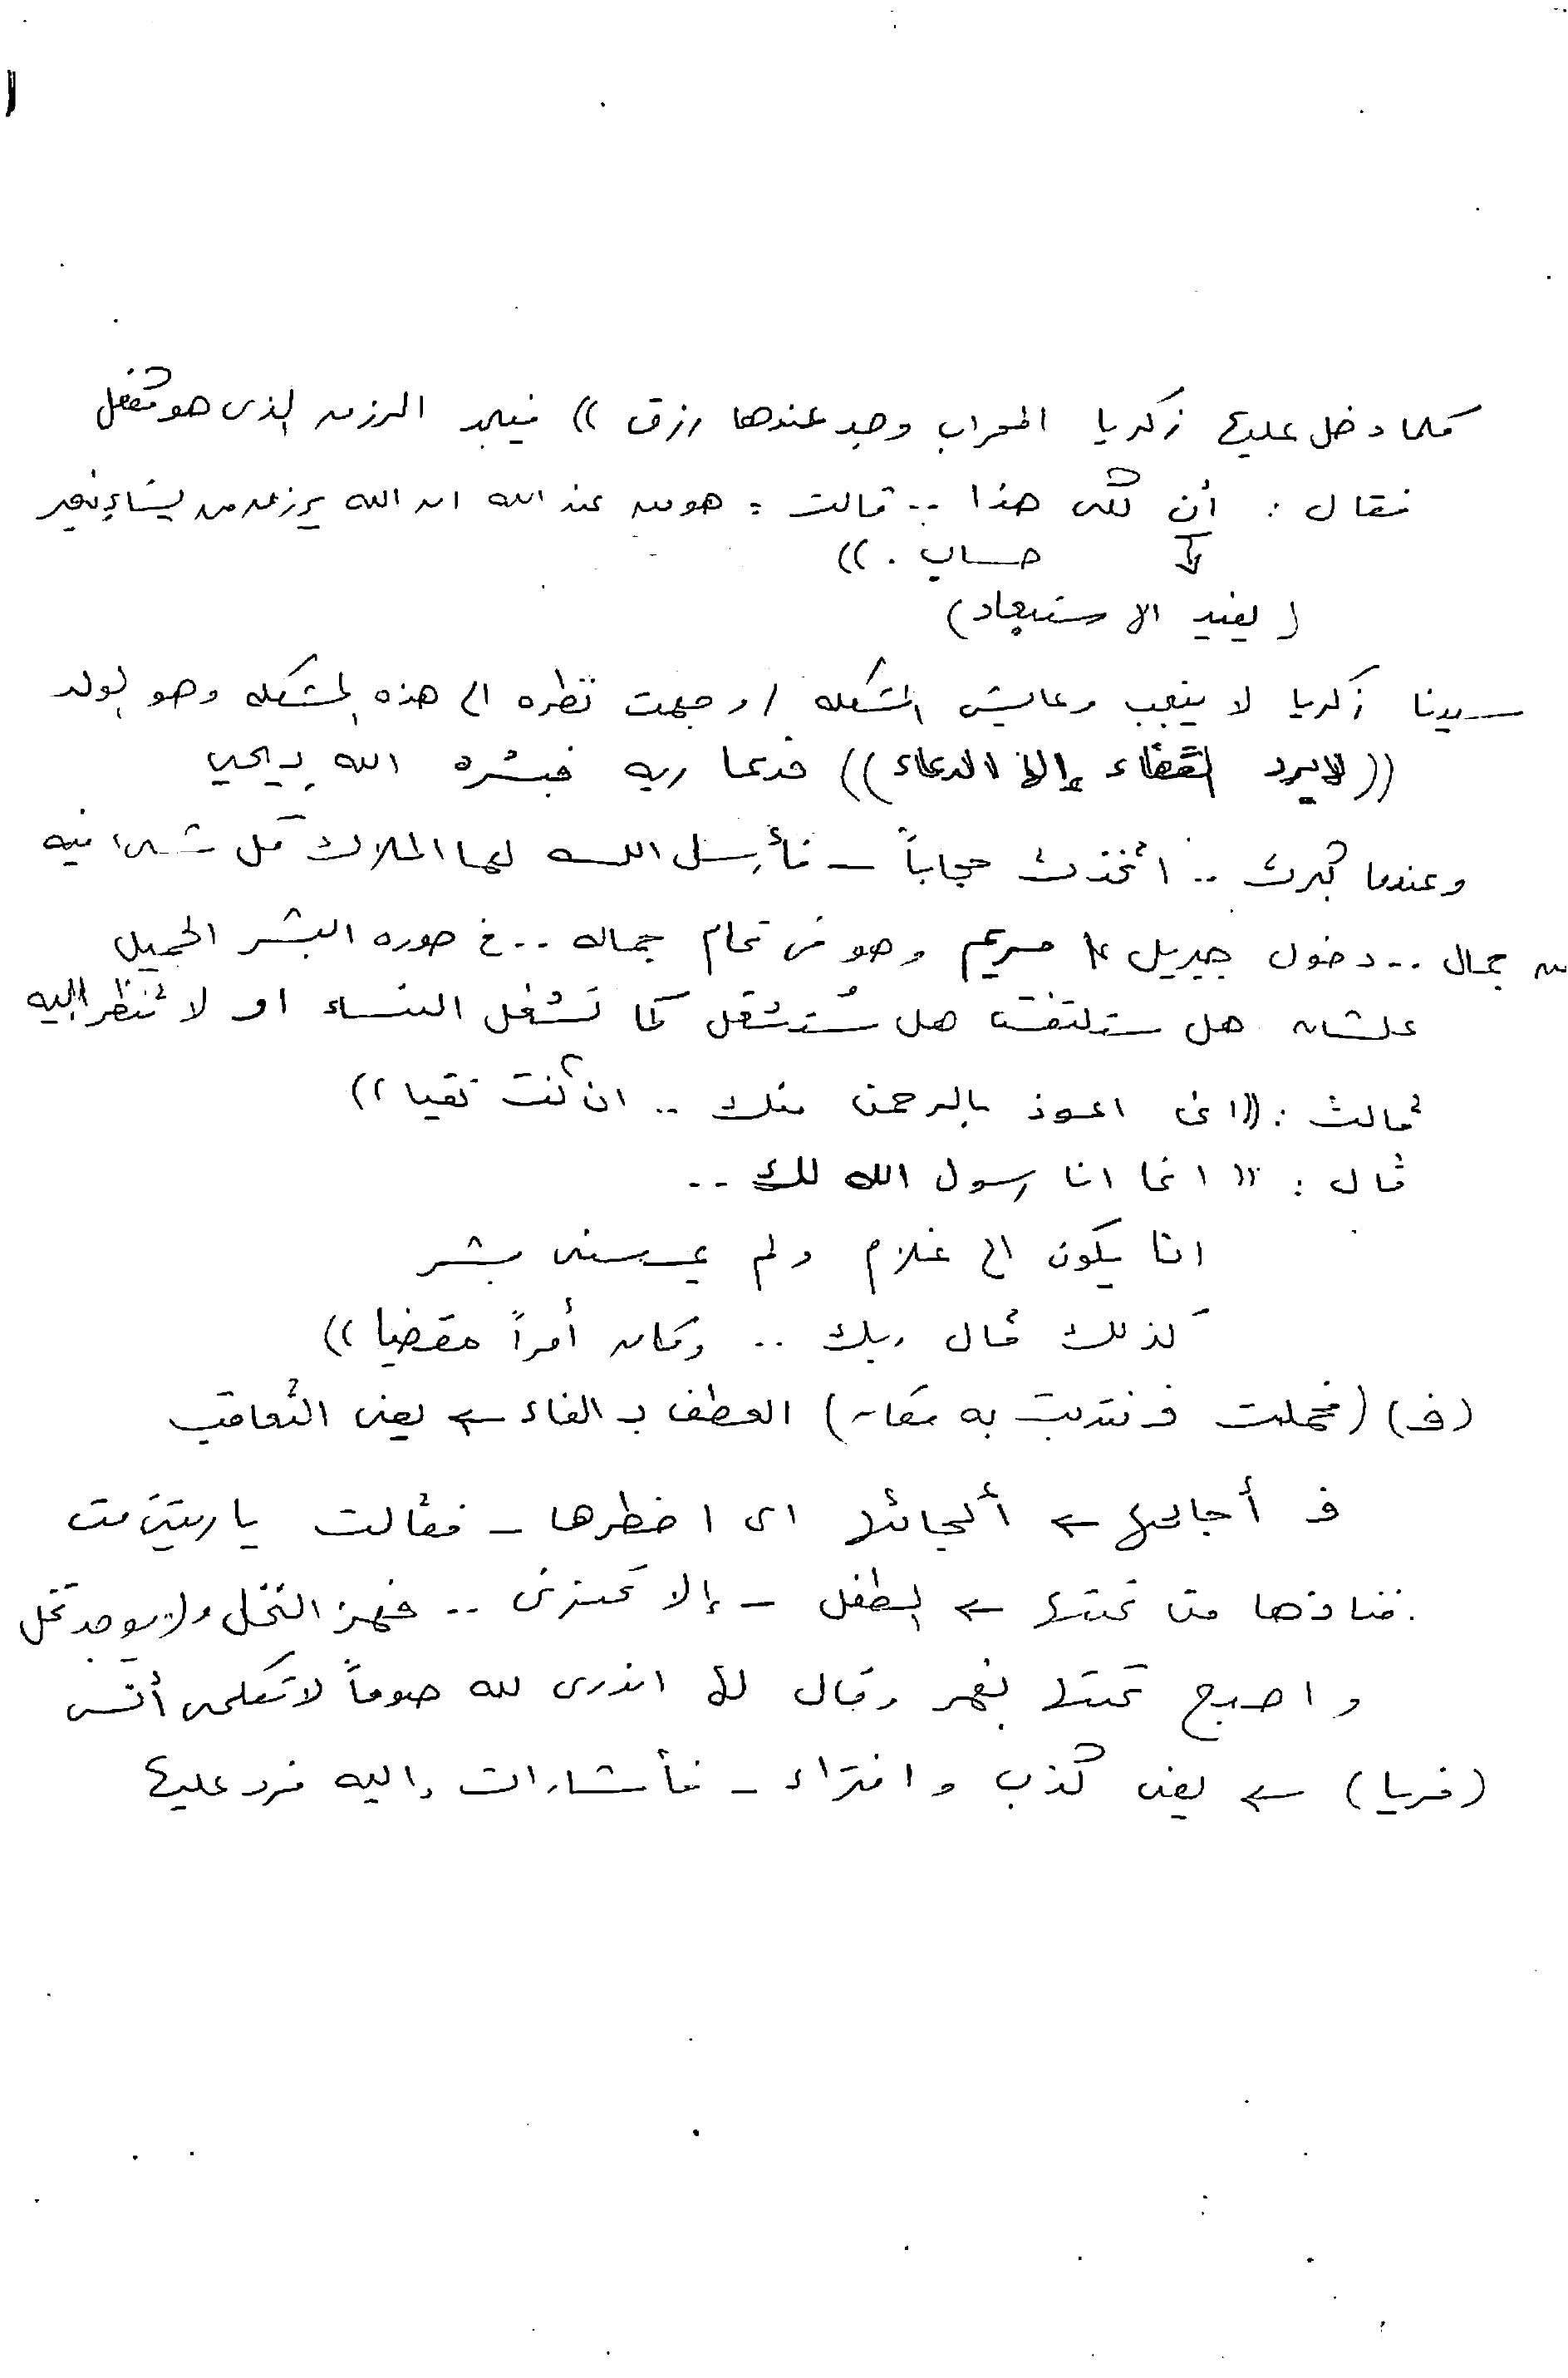 كلما دخل عليها زكريا المحراب وجد عندها رزق )) فيجد الرزق الذى هو
فقال : أن لكى هذا .. قالت : هو من عند الله ان الله يرزق من يشاء بغير
حساب . ))
( يفيد الاستبعاد )
سيدنا زكريا لا ينجب وعايش المشكله / وجهت نظره الى هذه المشكله وهو الولد
(( لا يرد القضاء إلا الدعاء )) فدعا ربه فبشره الله بـ يحي
وعندما كبرت .. اتخذت حجاباً - فأرسل الله لها الملاك كل شىء فيه
من جمال .. دخول جبريل على مريم وهو فى تمام جماله .. فى صوره البشر الجميل
علشان هل ستلتفت هل ستنشغل كما تنشغل النساء او لا تنظر إليه
قالت : (( انى اعوذ بالرحمن منك .. ان كنت تقيا ))
قال : (( انما انا رسول الله لك ..
انا يكون لى غلام ولم يمسسنى بشر
كذلك قال ربك .. وكان أمراً مقضيا ))
(فـ) (فحملت فـ نتذبت به مكان) العطف بـ الفاء ← يعنى التعاقب
فـ أجائها ← ألجائها اى اضطرها - فقالت يا ريتنى مت
فنادها من تحتها ← الطفل - إلا تحزنى .. فهز النخل ولا يوجد نخل
واصبح تحتها نهر وقال لها انذرى لله صوماً لا تكلمى أنس
(فريا) ← يعنى كذب وافتراء - فأشارات إليه فرد عليها